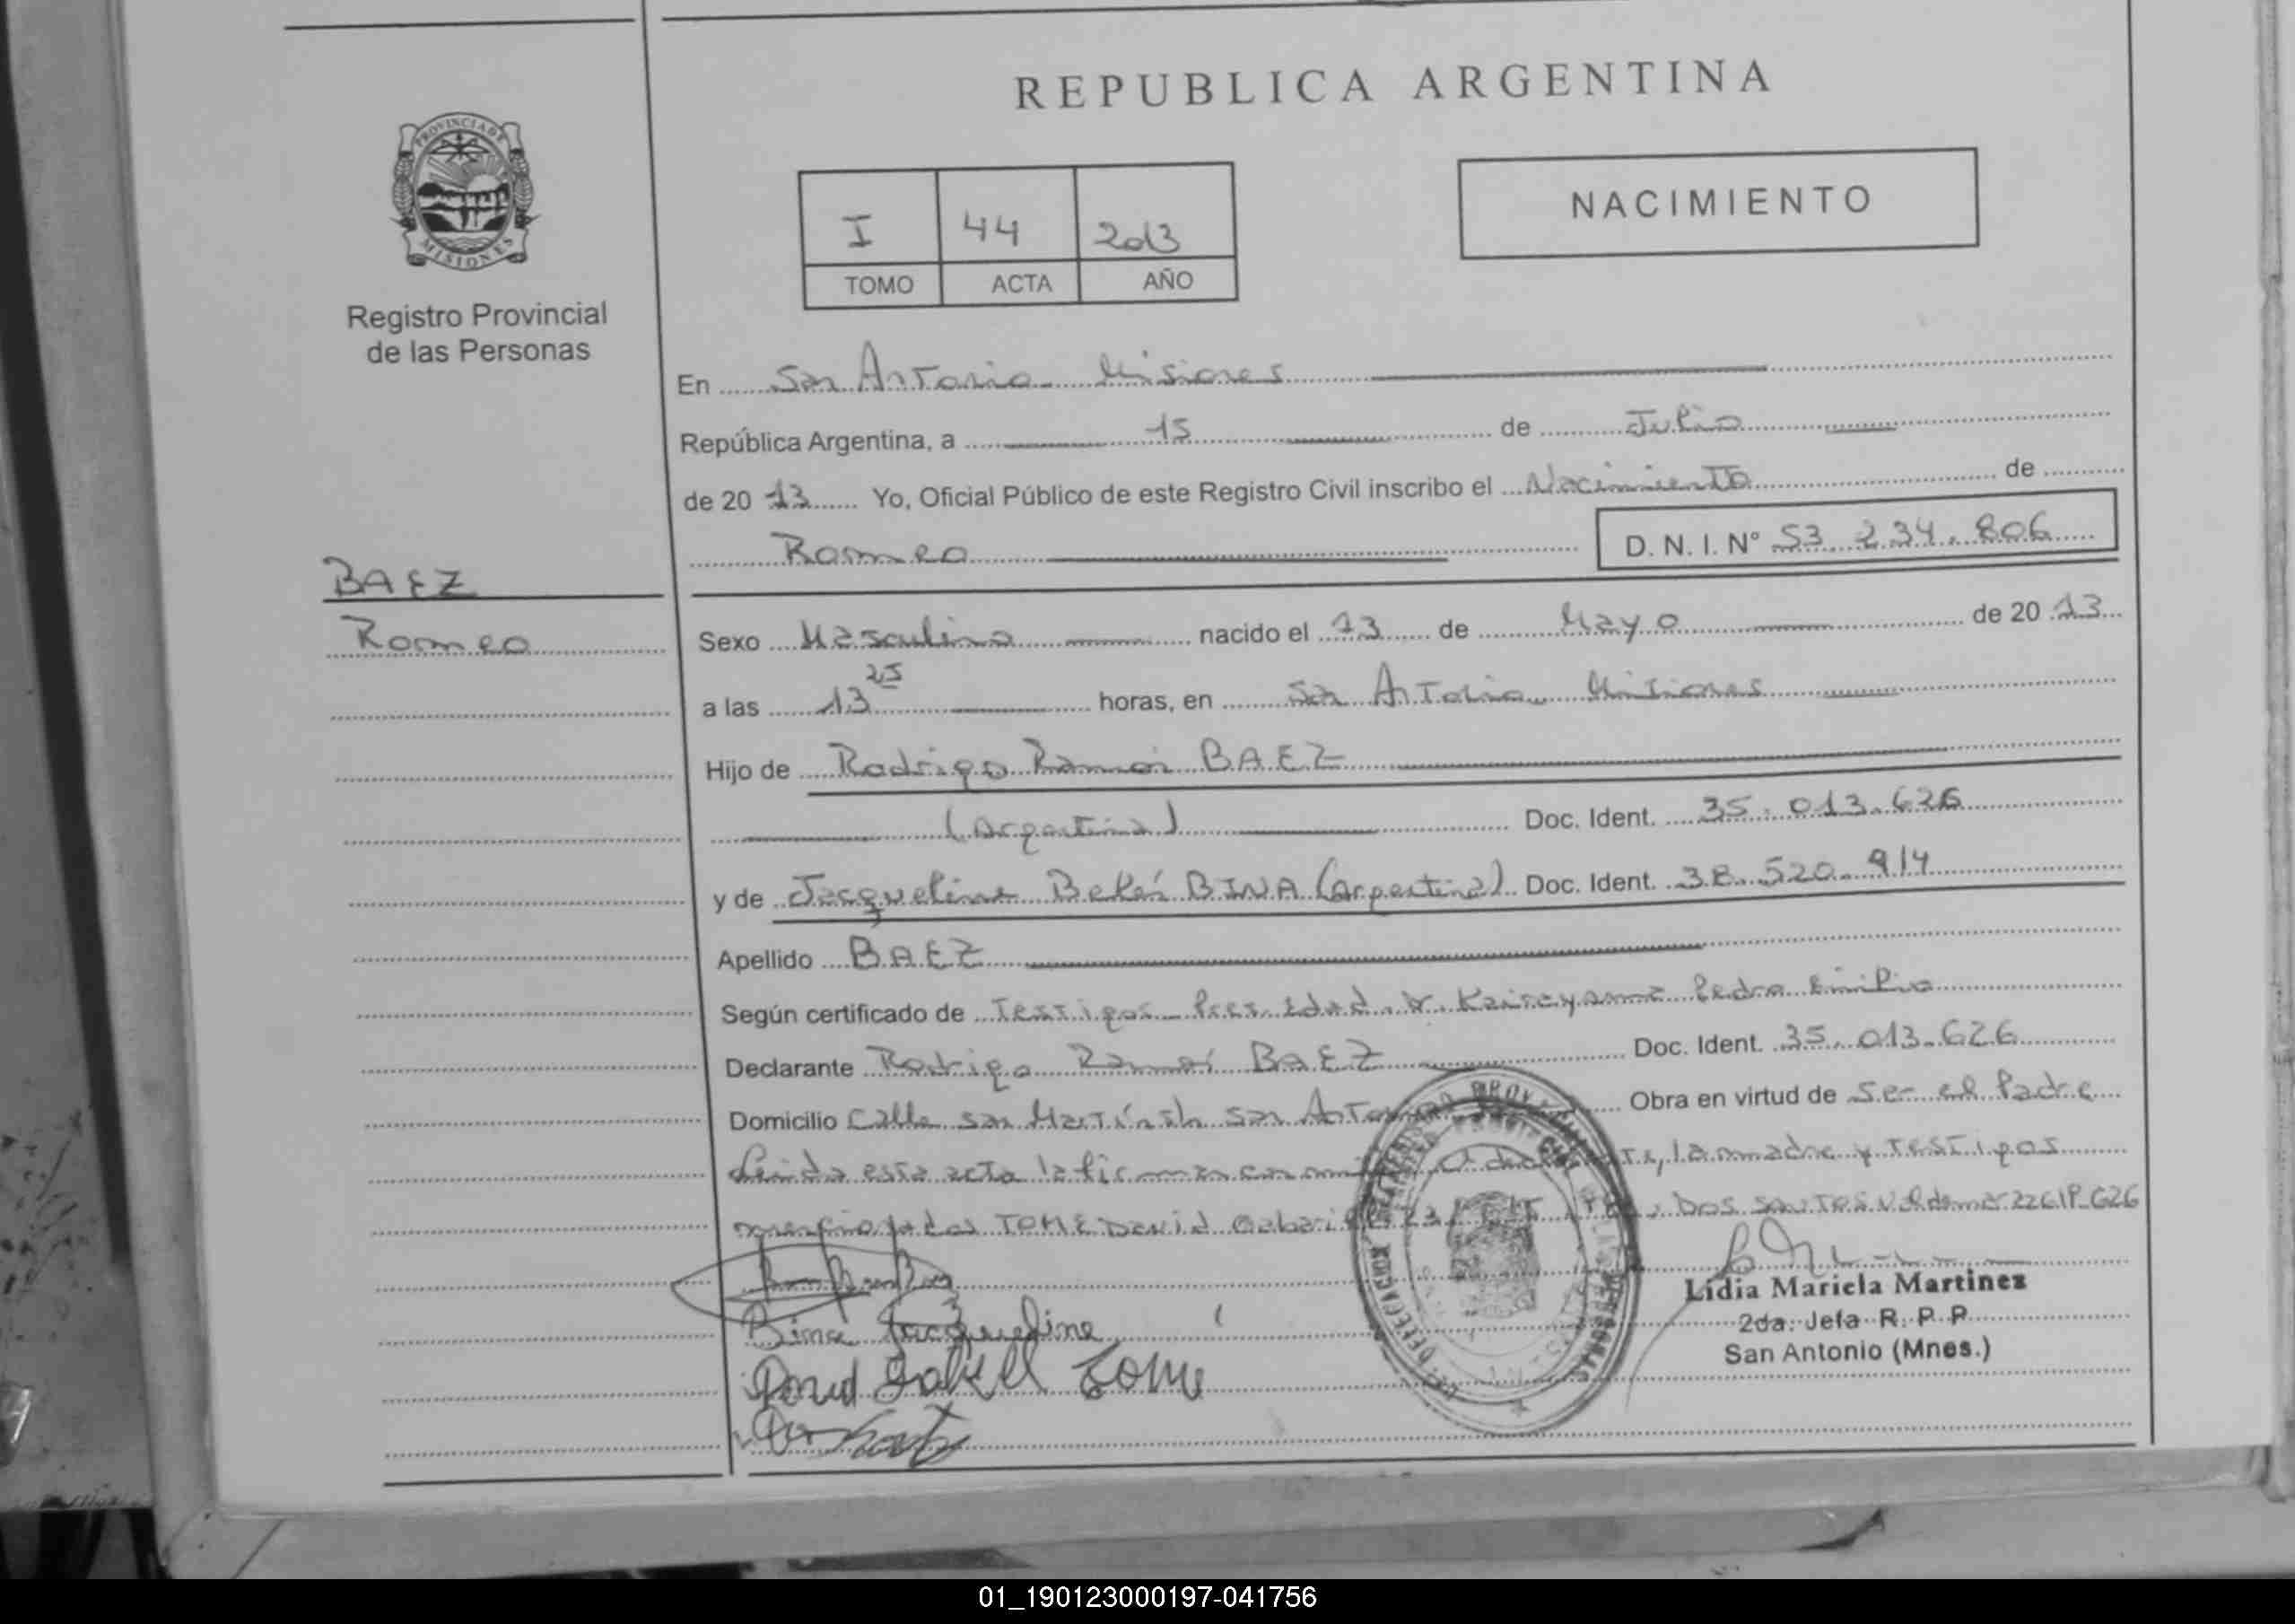 REPUBLICA ARGENTINA
PROVINCIA DE
MISIONES
Registro Provincial
de las Personas
I 44 2013
TOMO ACTA AÑO
NACIMIENTO
En San Antonio Misiones
República Argentina, a 15 de Julio
de 20 13 Yo, Oficial Público de este Registro Civil inscribo el Nacimiento de
Romeo D. N. I. N° 53.234.806
BAEZ
Romeo
Sexo Masculino nacido el 13 de Mayo de 20 13
a las 13 25 horas, en San Antonio Misiones
Hijo de Rodrigo Ramón BAEZ
(Argentina) Doc. Ident. 35.013.626
y de Jacqueline Belén BINA (Argentina) Doc. Ident. 38.520.914
Apellido BAEZ
Según certificado de Testigos Pedro Emilio
Declarante Rodrigo Ramón BAEZ Doc. Ident. 35.013.626
Domicilio Calle San Martín s/n San Obra en virtud de ser el Padre
Leida esta acta la firman la madre y testigos
TOME David Dos Santos
Bina Jacqueline
David Tome
Lidia Mariela Martinez
2da. Jefa R. P. P.
San Antonio (Mnes.)
01_190123000197-041756